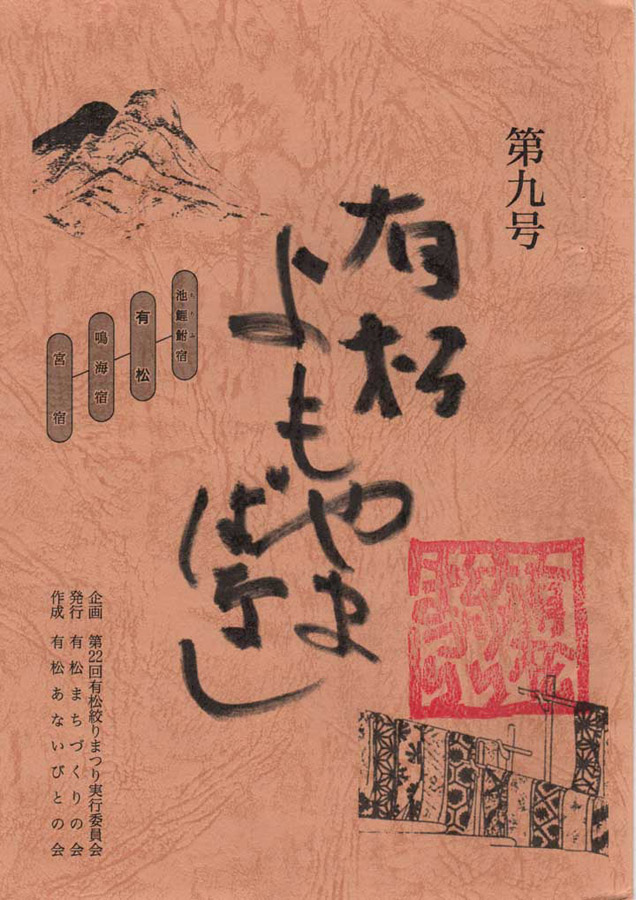 第九号
有松
よもやま
ばなし
池鯉鮒宿
ちりふ
有松
鳴海宿
宮宿
企画 第22回有松絞りまつり実行委員会
発行 有松まちづくりの会
作成 有松あないびとの会